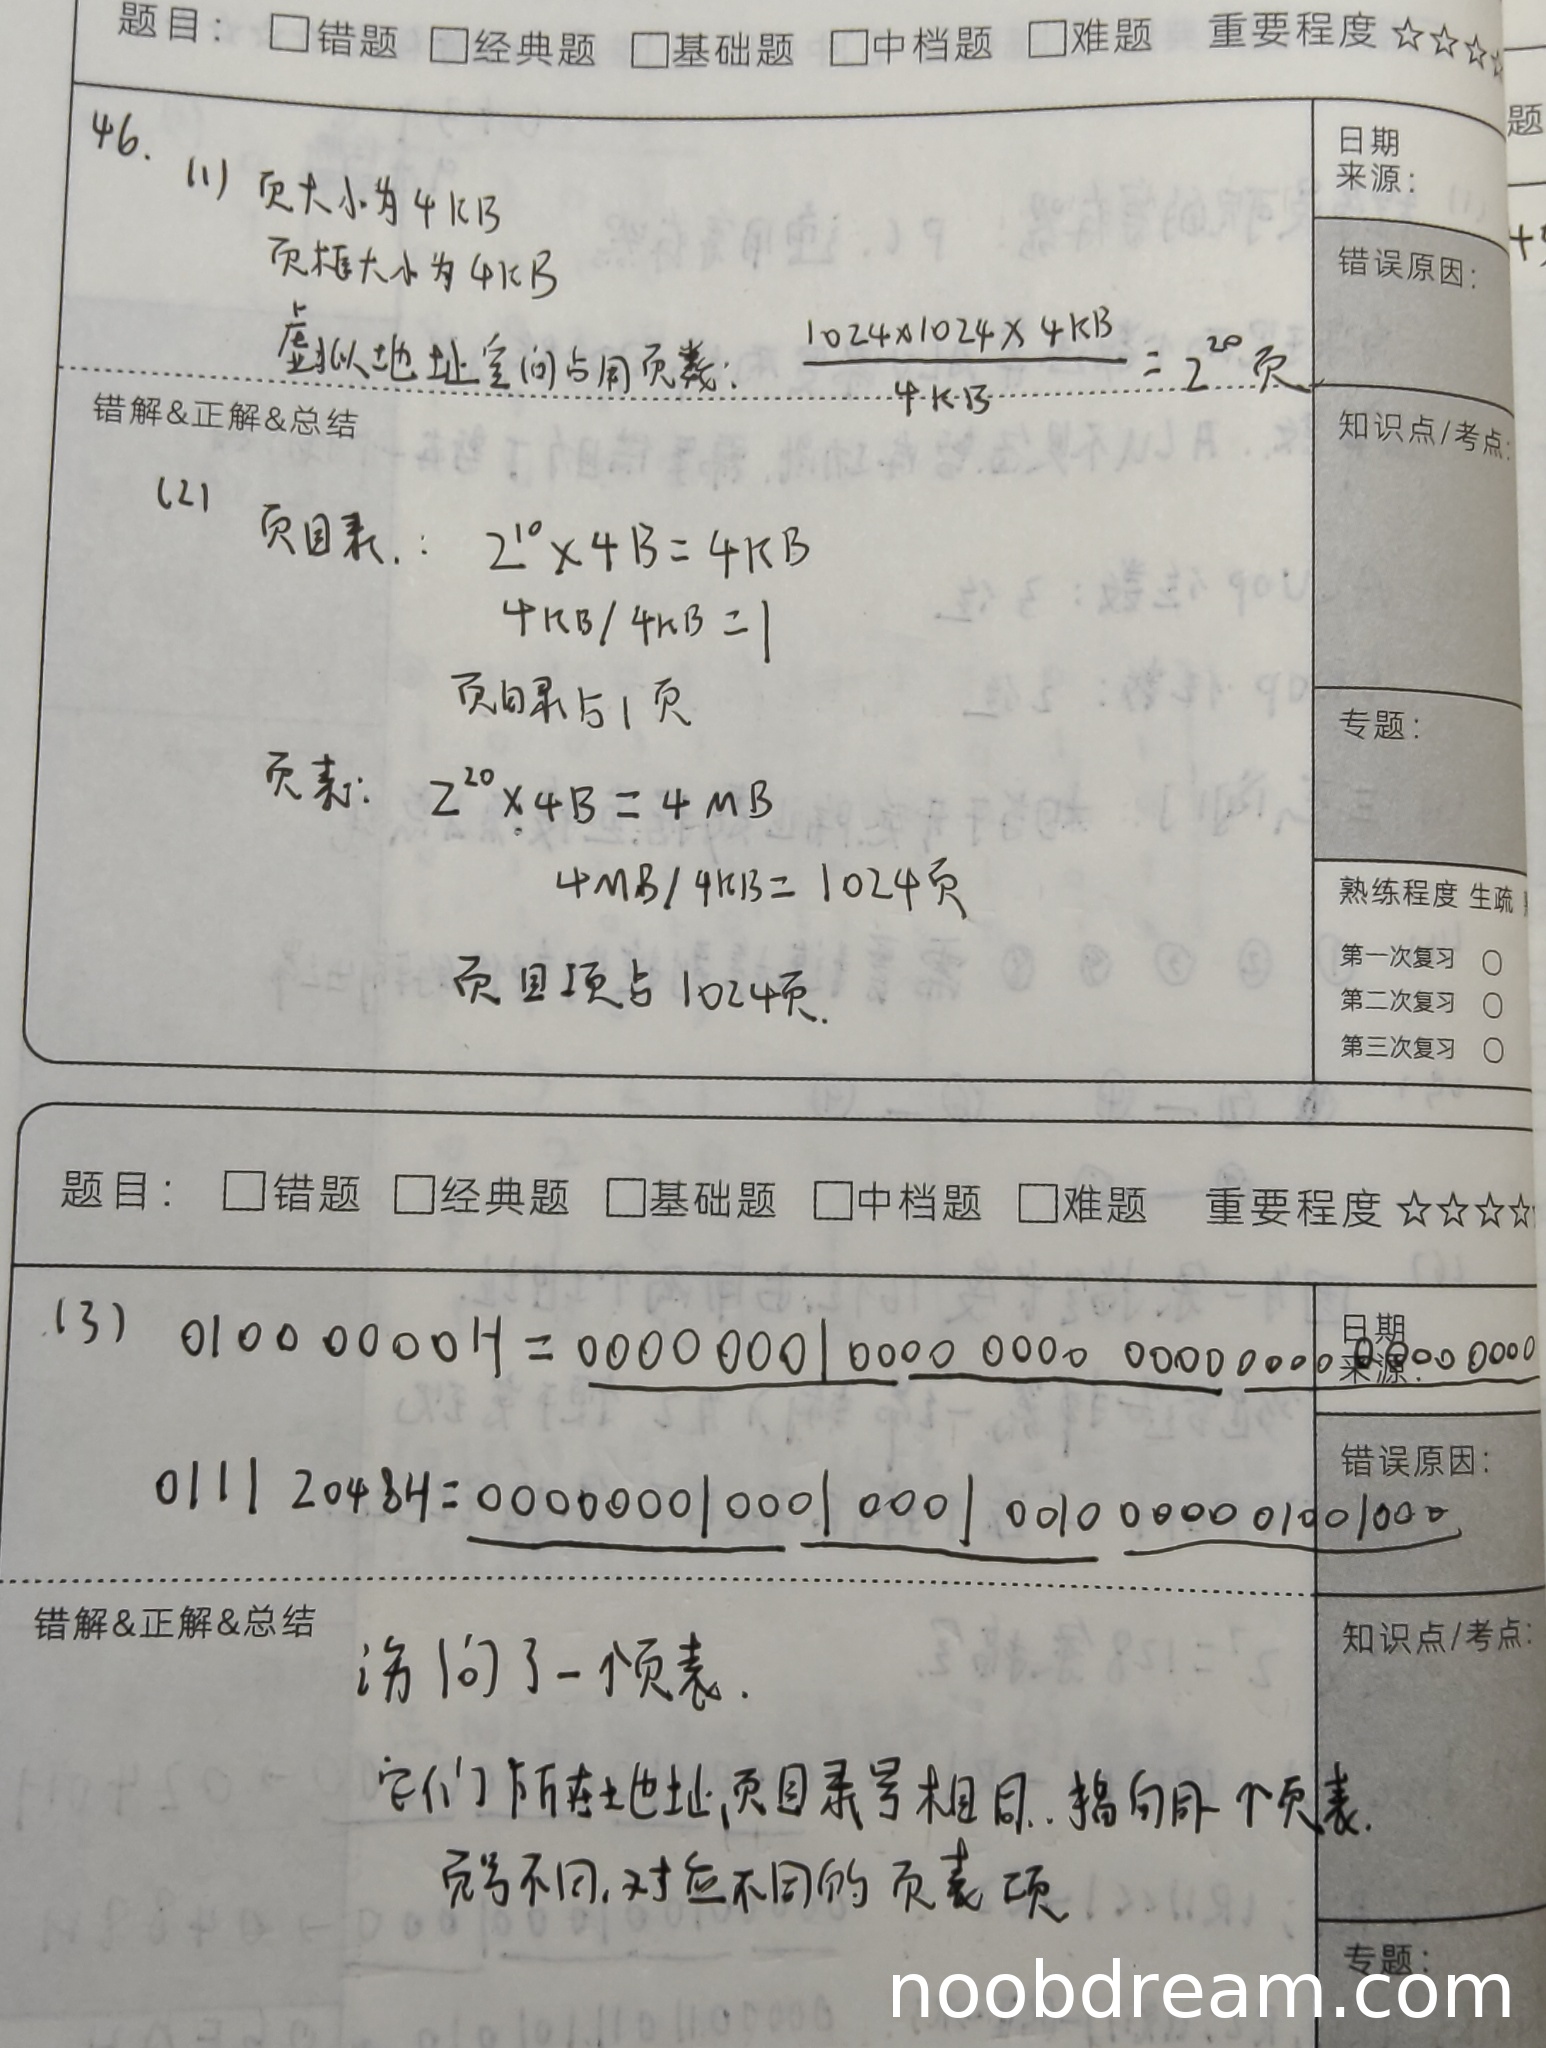 题目： □错题 □经典题 □基础题 □中档题 □难题 重要程度 ☆☆☆☆
46.
日期
来源：
(1) 页大小为4KB
页框大小为4KB
错误原因：
虚拟地址空间占用页数： 1024×1024×4KB / 4KB = 2^20 页
错解&正解&总结
知识点/考点：
(2) 页目录： 2^10×4B=4KB
4KB/4KB=1
页目录占1页
专题：
页表： 2^20×4B=4MB
4MB/4KB=1024页
页目项占1024页.
熟练程度 生疏
第一次复习 ○
第二次复习 ○
第三次复习 ○
题目： □错题 □经典题 □基础题 □中档题 □难题 重要程度 ☆☆☆☆
日期
来源：
(3) 0100 0000H = 0000 0001 0000 0000 0000 0000 0000 0000
错误原因：
0111 2048H = 0000 0001 0001 0001 0010 0000 0100 1000
错解&正解&总结
知识点/考点：
访问了一个页表.
它们所在地址,页目录号相同.指向同一个页表.
页号不同,对应不同的页表项
专题：
noobdream.com